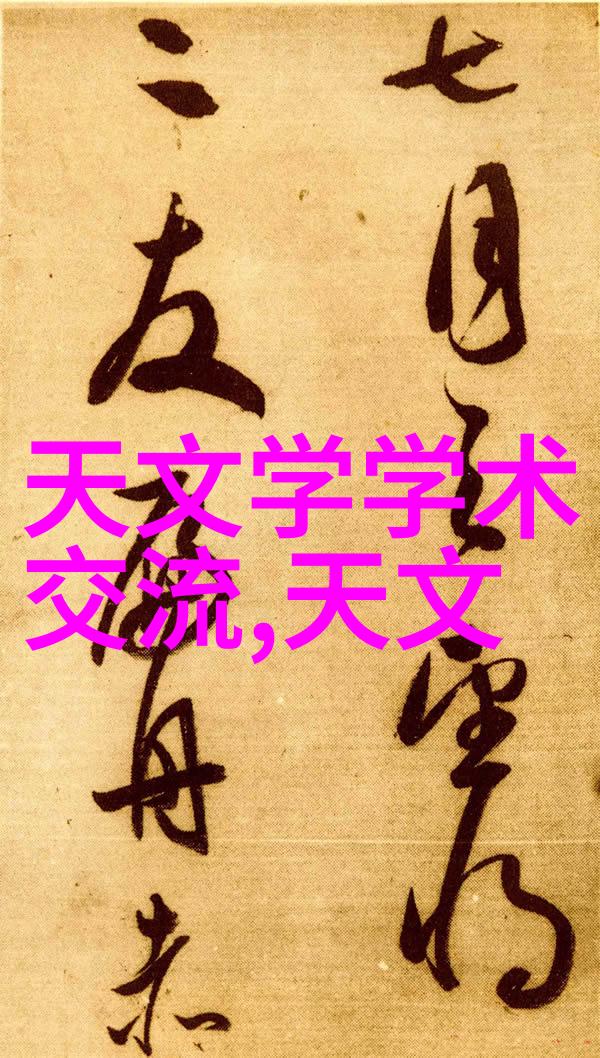 七月之望将
二友舟赤
天文学学术
交流,天文